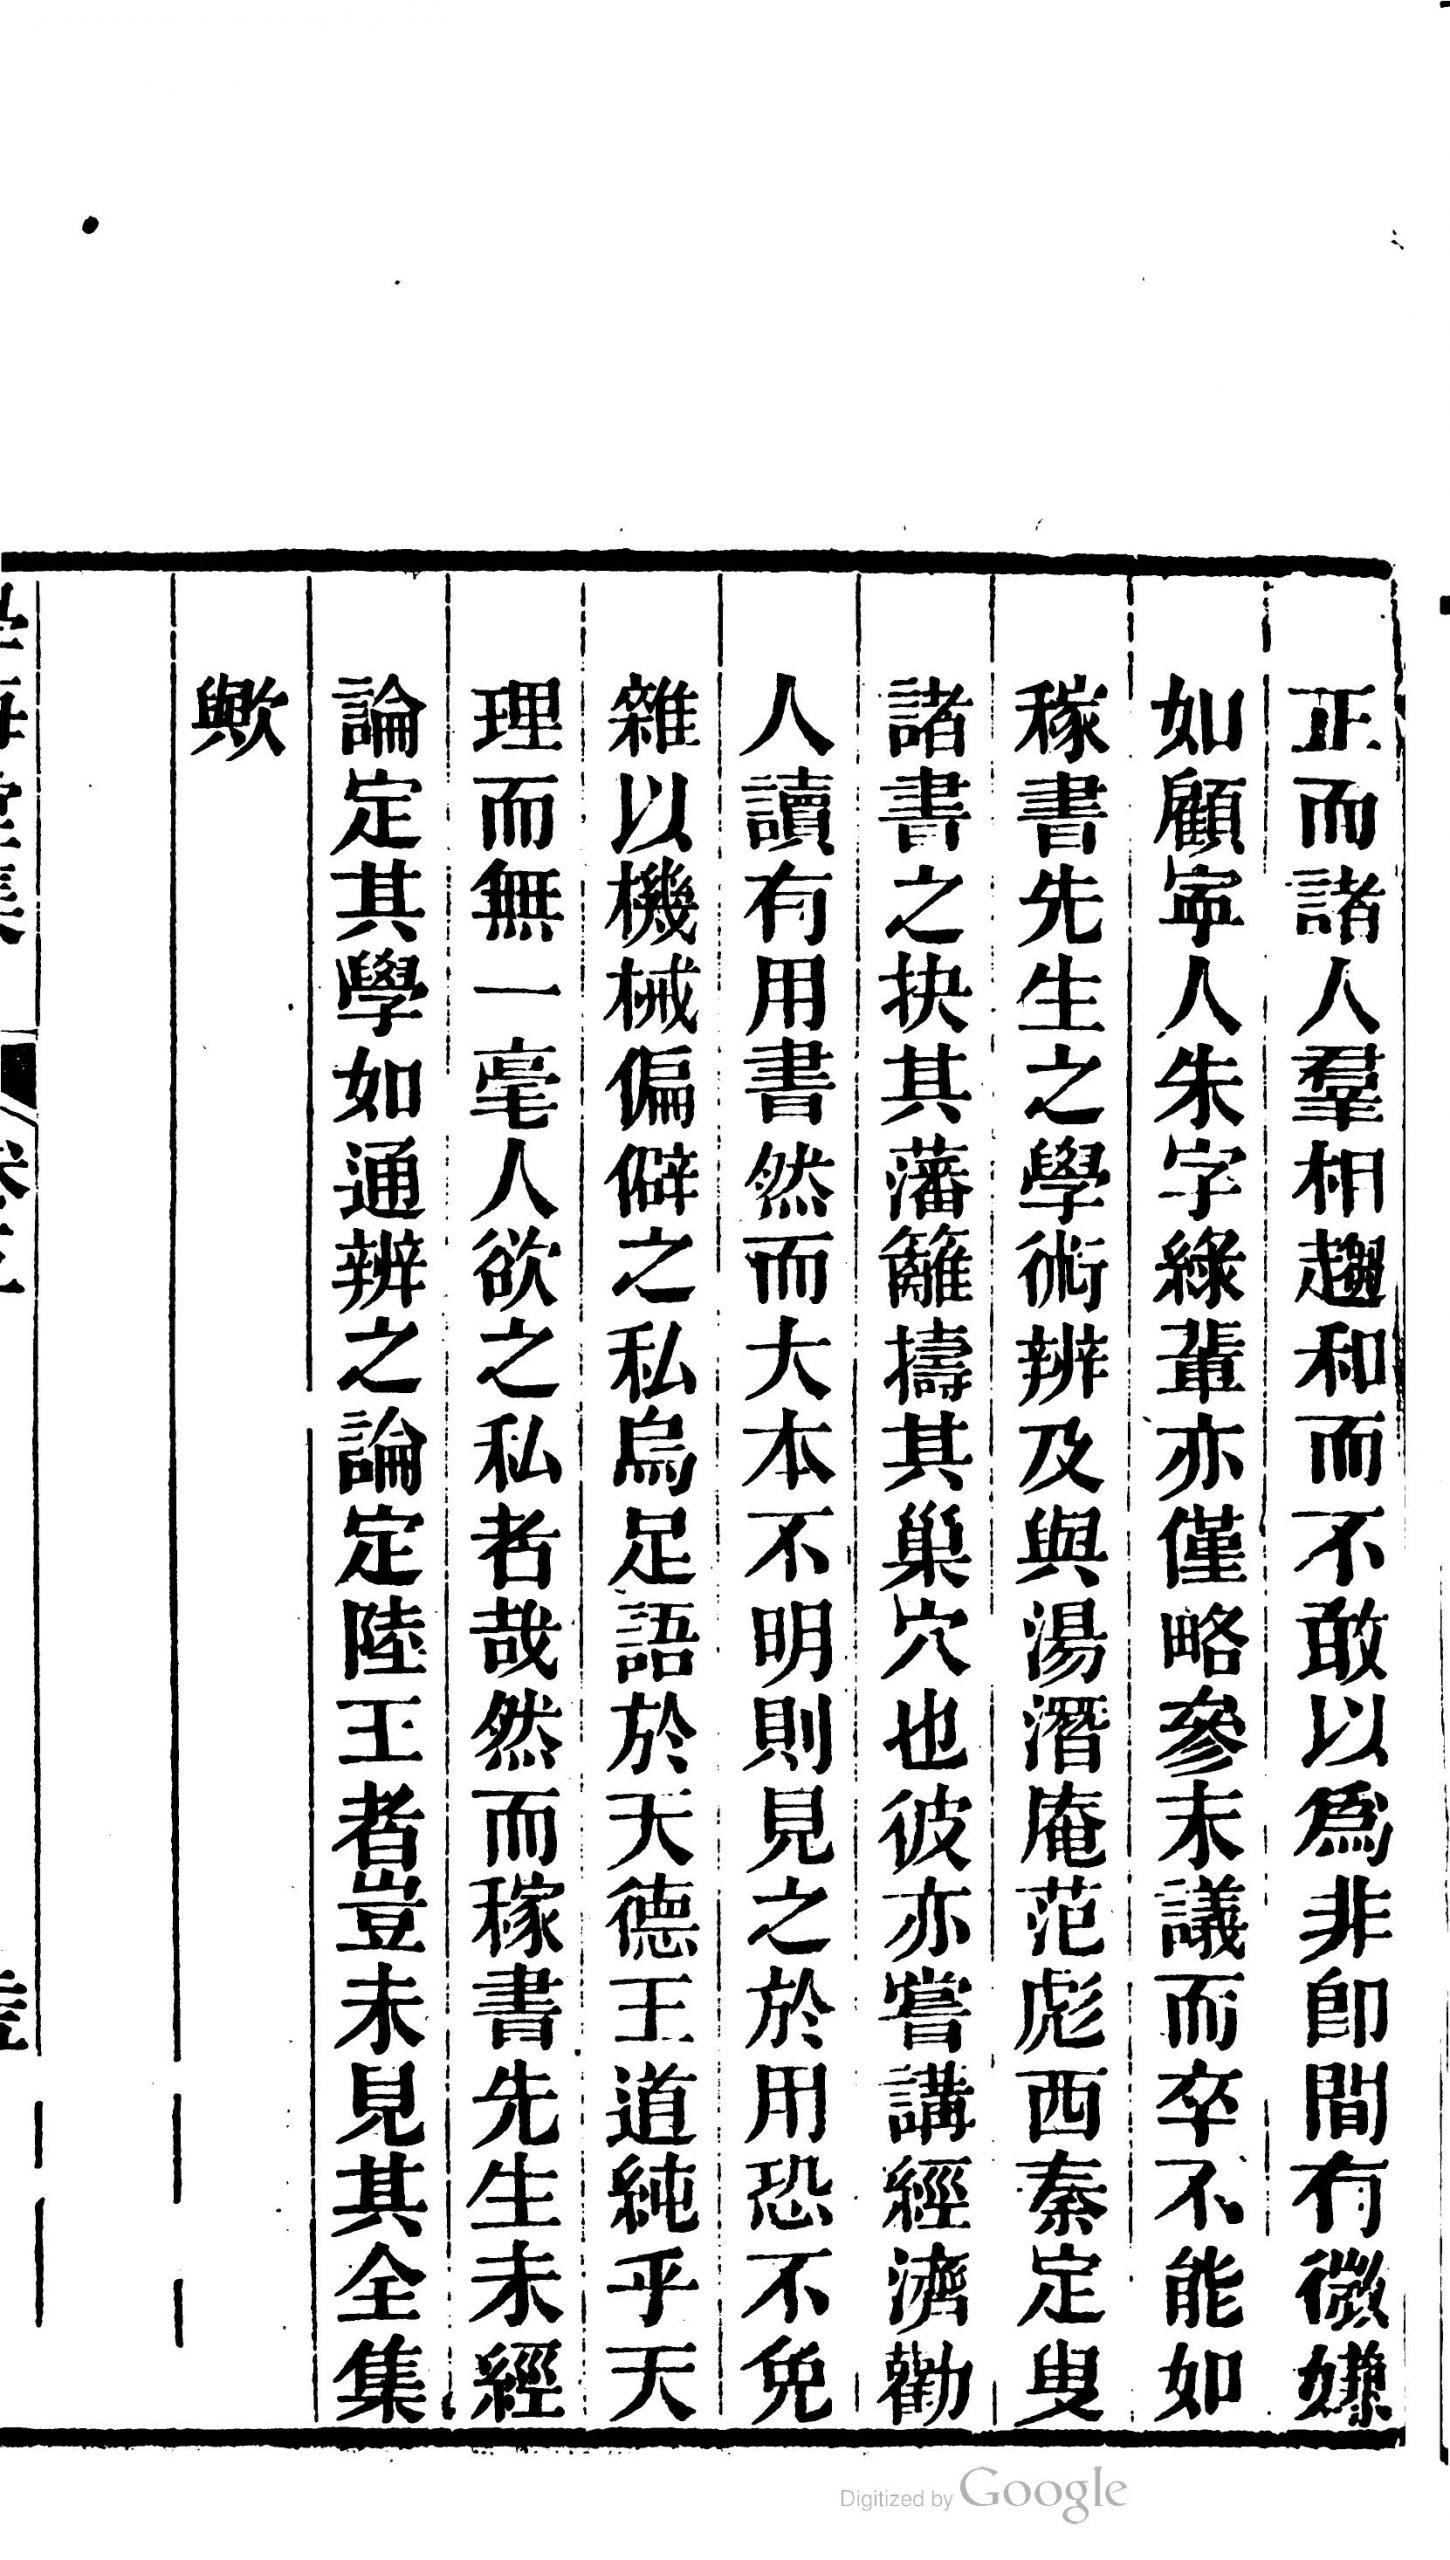 正而諸人羣相趨和而不敢以爲非卽間有微嫌
如顧寧人朱字綠輩亦僅略參末議而卒不能如
稼書先生之學術辨及與湯潛庵范彪西秦定叟
諸書之抉其藩籬擣其巢穴也彼亦嘗講經濟勸
人讀有用書然而大本不明則見之於用恐不免
雜以機械偏僻之私烏足語於天德王道純乎天
理而無一毫人欲之私者哉然而稼書先生未經
論定其學如通辨之論定陸王者豈未見其全集
歟
Digitized by Google